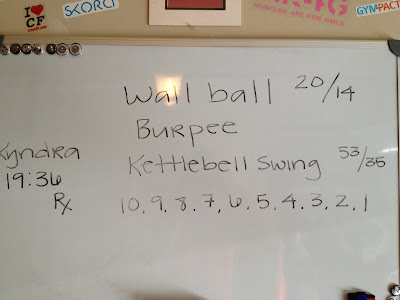 I ♥ CF
SKORA
NUMBERS ARE FOR GIRLS
GYMPACT
Wall ball 20/14
Burpee
Kyndra
Kettlebell Swing 53/35
19:36
Rx
10, 9, 8, 7, 6, 5, 4, 3, 2, 1